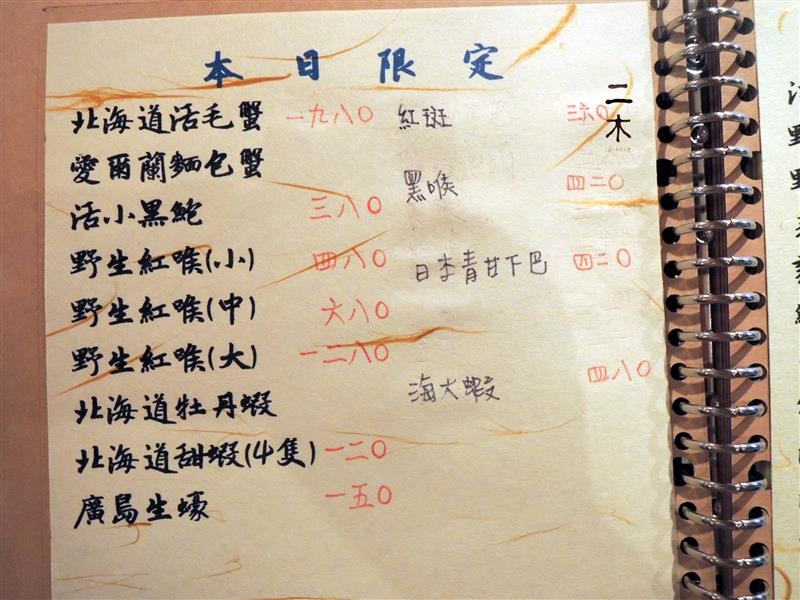 本日限定
北海道活毛蟹 一九八0
愛爾蘭麵包蟹
活小黑鮑 三八0
野生紅喉(小) 四八0
野生紅喉(中) 六八0
野生紅喉(大) 一二八0
北海道牡丹蝦
北海道甜蝦(4隻) 一二0
廣島生蠔 一五0
紅斑 三六0
黑喉 四二0
日本青甘下巴 四二0
海大蝦 四八0
二木